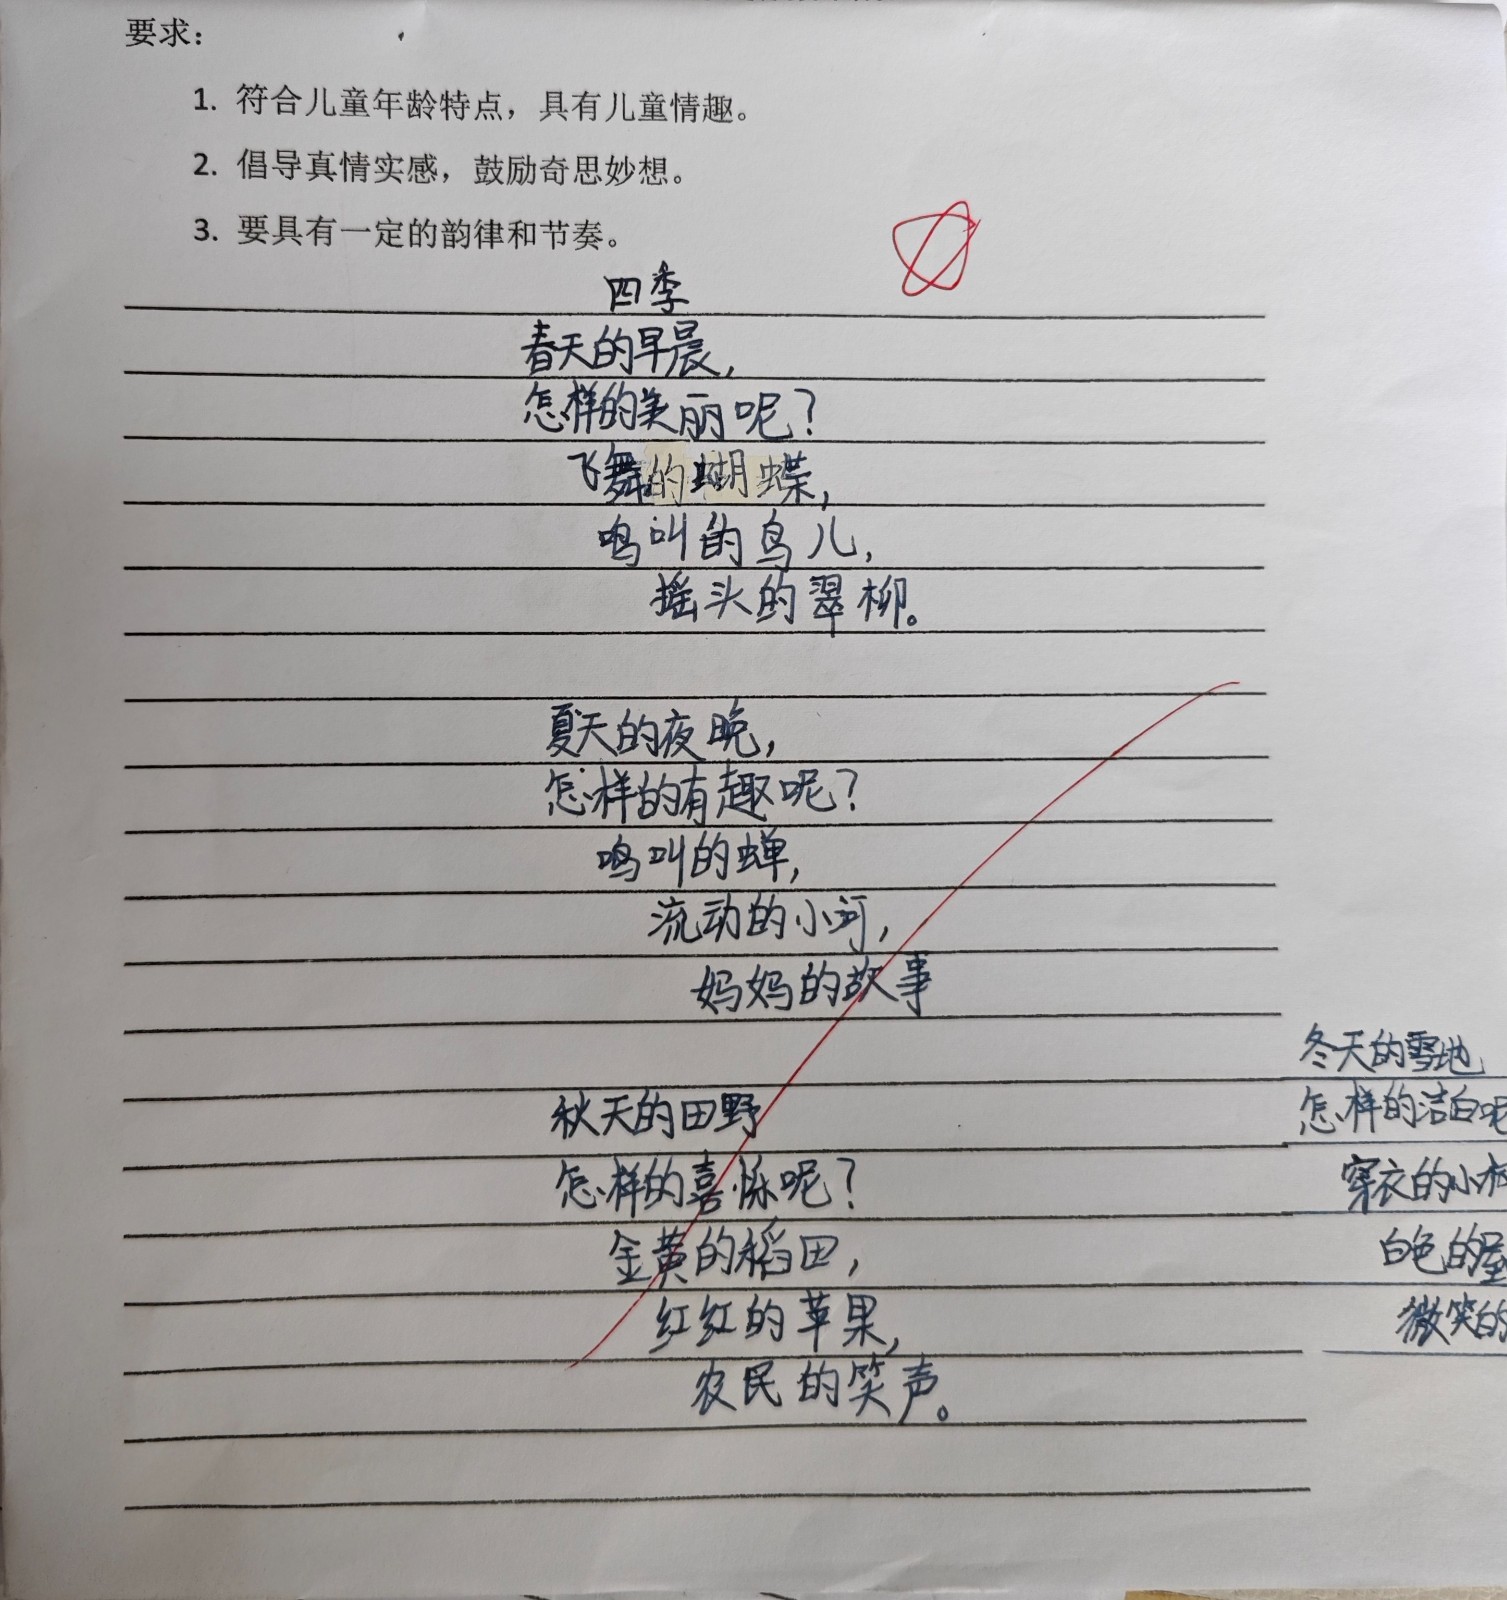 要求：
1. 符合儿童年龄特点，具有儿童情趣。
2. 倡导真情实感，鼓励奇思妙想。
3. 要具有一定的韵律和节奏。
四季
春天的早晨，
怎样的美丽呢？
飞舞的蝴蝶，
鸣叫的鸟儿，
摇头的翠柳。
夏天的夜晚，
怎样的有趣呢？
鸣叫的蝉，
流动的小河，
妈妈的故事
秋天的田野
怎样的喜悦呢？
金黄的稻田，
红红的苹果，
农民的笑声。
冬天的雪地
怎样的洁白呢
穿衣的小
白色的
微笑的